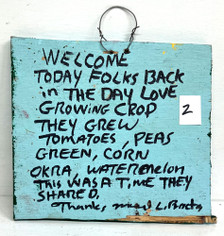 WELCOME
TODAY FOLKS BACK
in THE DAY LOVE
GROWING CROP
THEY GREW
TOMATOES, PEAS
GREEN, CORN
OKRA, WATERMELON
THIS WAS A TIME THEY
SHARED.
Thanks,
2